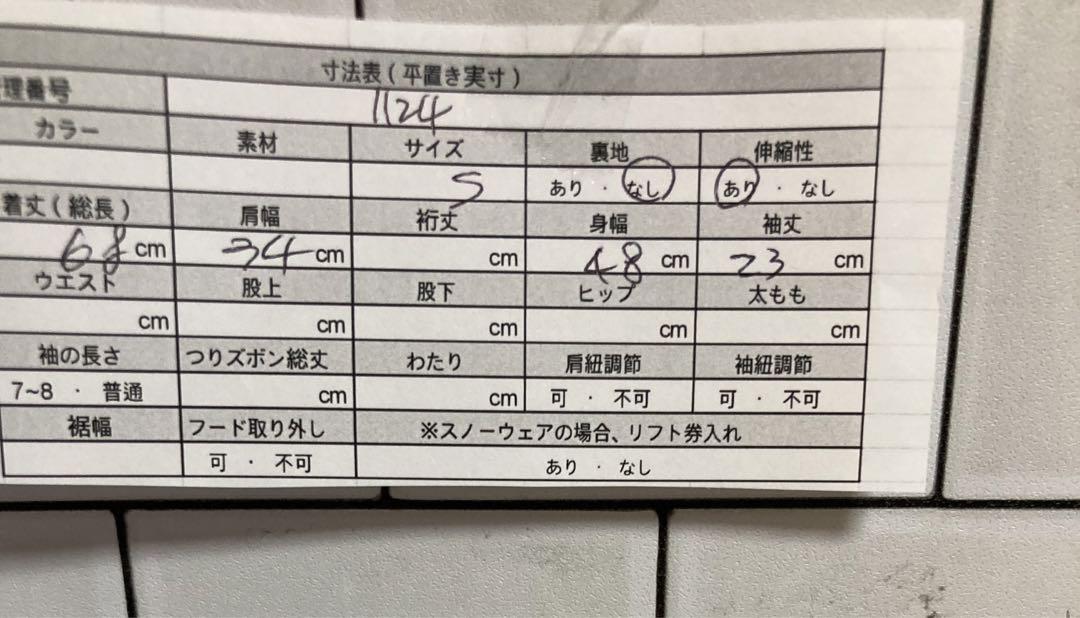 寸法表(平置き実寸)
理番号 1124
カラー 素材 サイズ 裏地 伸縮性
S あり ・ なし あり ・ なし
着丈(総長) 肩幅 裄丈 身幅 袖丈
68 cm 34 cm cm 48 cm 23 cm
ウエスト 股上 股下 ヒップ 太もも
cm cm cm cm cm
袖の長さ つりズボン総丈 わたり 肩紐調節 袖紐調節
7~8 ・ 普通 cm cm 可 ・ 不可 可 ・ 不可
裾幅 フード取り外し ※スノーウェアの場合、リフト券入れ
可 ・ 不可 あり ・ なし